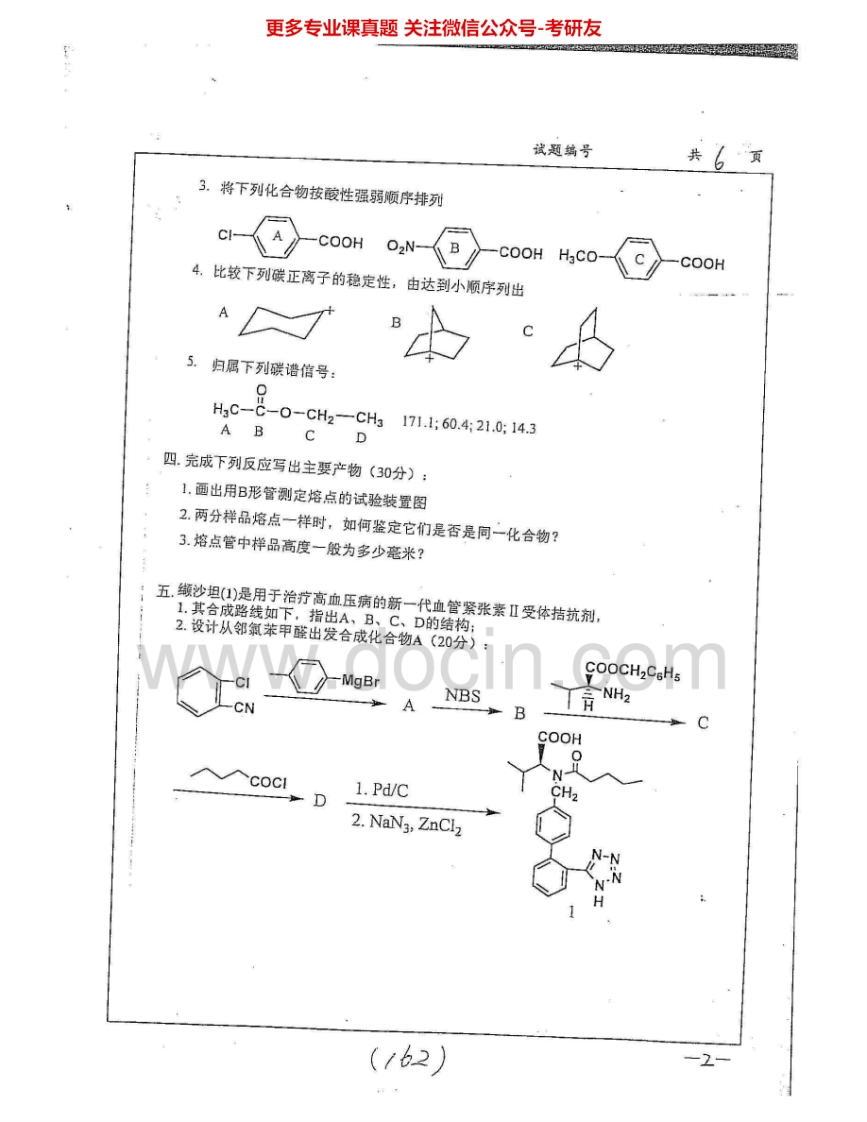 更多专业课真题 关注微信公众号-考研友
试题编号 共 6 页
3. 将下列化合物按酸性强弱顺序排列
Cl- A -COOH O₂N- B -COOH H₃CO- C -COOH
4. 比较下列碳正离子的稳定性，由达到小顺序列出
A + B + C +
5. 归属下列碳谱信号：
O
H₃C-C-O-CH₂-CH₃ 171.1; 60.4; 21.0; 14.3
A B C D
四. 完成下列反应写出主要产物（30分）：
1. 画出用B形管测定熔点的试验装置图
2. 两分样品熔点一样时，如何鉴定它们是否是同一化合物？
3. 熔点管中样品高度一般为多少毫米？
五. 缬沙坦(1)是用于治疗高血压病的新一代血管紧张素Ⅱ受体拮抗剂，
1. 其合成路线如下，指出A、B、C、D的结构；
2. 设计从邻氯苯甲醛出发合成化合物A（20分）：
www.docin.com
Cl CN MgBr A NBS B COOCH₂C₆H₅ NH₂ H C
COCl D 1. Pd/C
2. NaN₃, ZnCl₂
COOH
O
N
CH₂
N-N
N
N
H
1
(162)
—2—